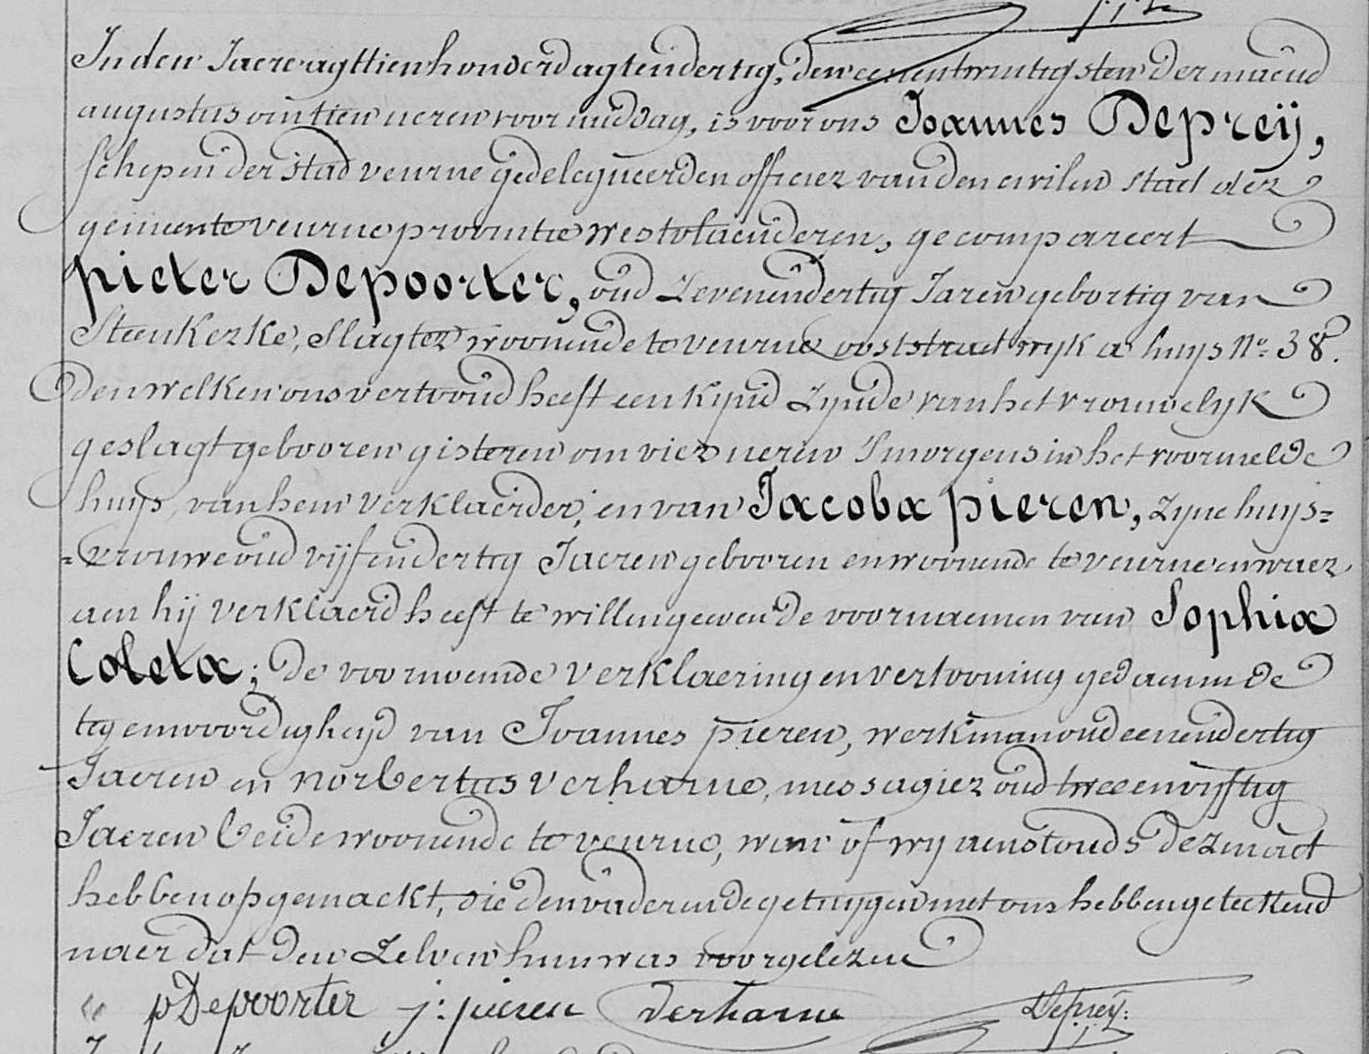 In den Jaere agttien honderd agtendertig, den eenentwintigsten der maend
augustus om tien ueren voor middag, is voor ons Joannes Depreij,
schepen der stad veurne gedelegueerden officier van den civilen staet der
gemeente veurne provintie westvlaenderen, gecompareert
pieter Depoorter, oud zevenendertig Jaren gebortig van
Steenkerke, slagter woonende te veurne ooststraet wyk a huys No. 38.
Den welken ons vertoond heeft een kynd zynde van het vrouwelyk
geslagt gebooren gisteren om vier ueren s'morgens in het voormelde
huys, van hem verklaerder, en van Jacoba pieren, zyne huys=
=vrouwe oud vijfendertig Jaeren gebooren en woonende te veurne en waer
aen hij verklaerd heeft te willen geven de voornaemen van Sophia
Coleta; De voornoemde verklaering en vertooning gedaen in de
tegenwoordigheyd van Joannes pieren, werkman oud eenendertig
Jaeren en norbertus verharne, messagier oud tweeenvyftig
Jaeren beide woonende te veurne, waer of wy aenstonds dezen act
hebben opgemaekt, die den vader en de getuygen met ons hebben geteekend
naer dat den zelven hun was voorgelezen
pDepoorter j: pieren Verharne Depreij